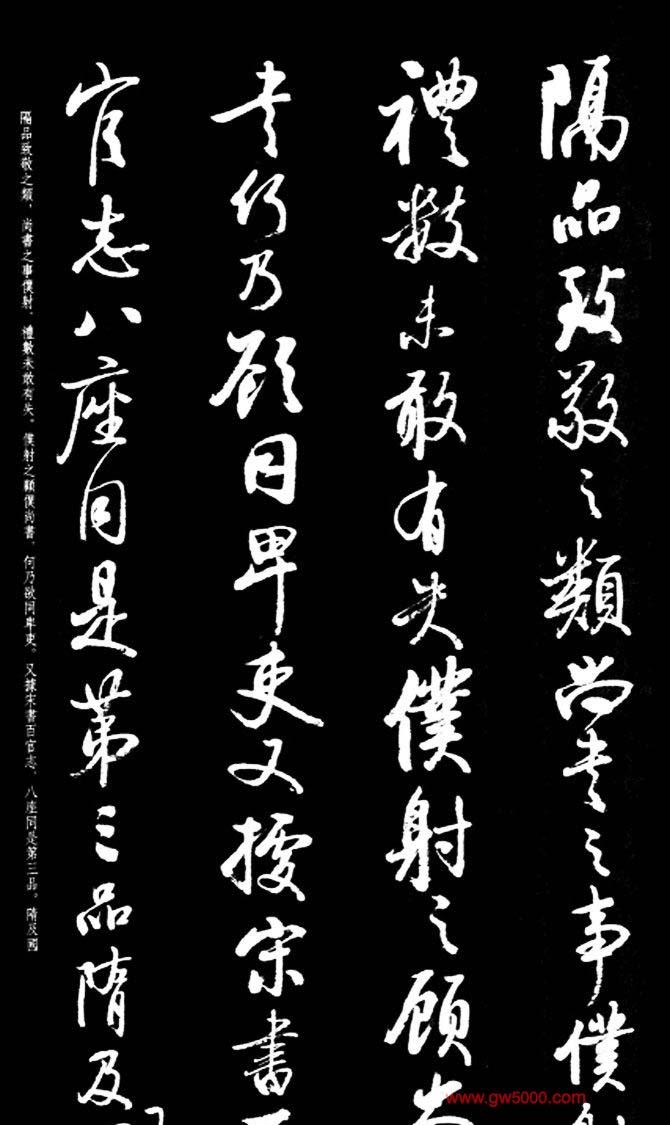 隔品致敬之類尚書之事僕射
禮數未敢有失僕射之顧尚
書何乃欲同卑吏又據宋書百
官志八座同是第三品隋及
隔品致敬之類、尚書之事僕射、禮數未敢有失。僕射之顧僕尚書、何乃欲同卑吏。又據宋書百官志、八座同是第三品。隋及國
www.gw5000.com